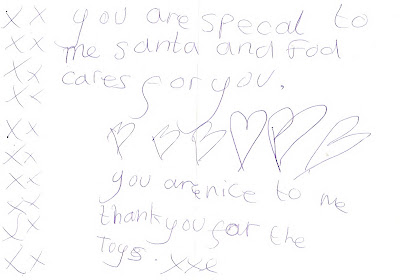 x x you are specal to
x x me santa and God
x x cares for you.
x x
x x
x x
x x you are nice to me
x x thank you for the
x x Toys. xxx
x x